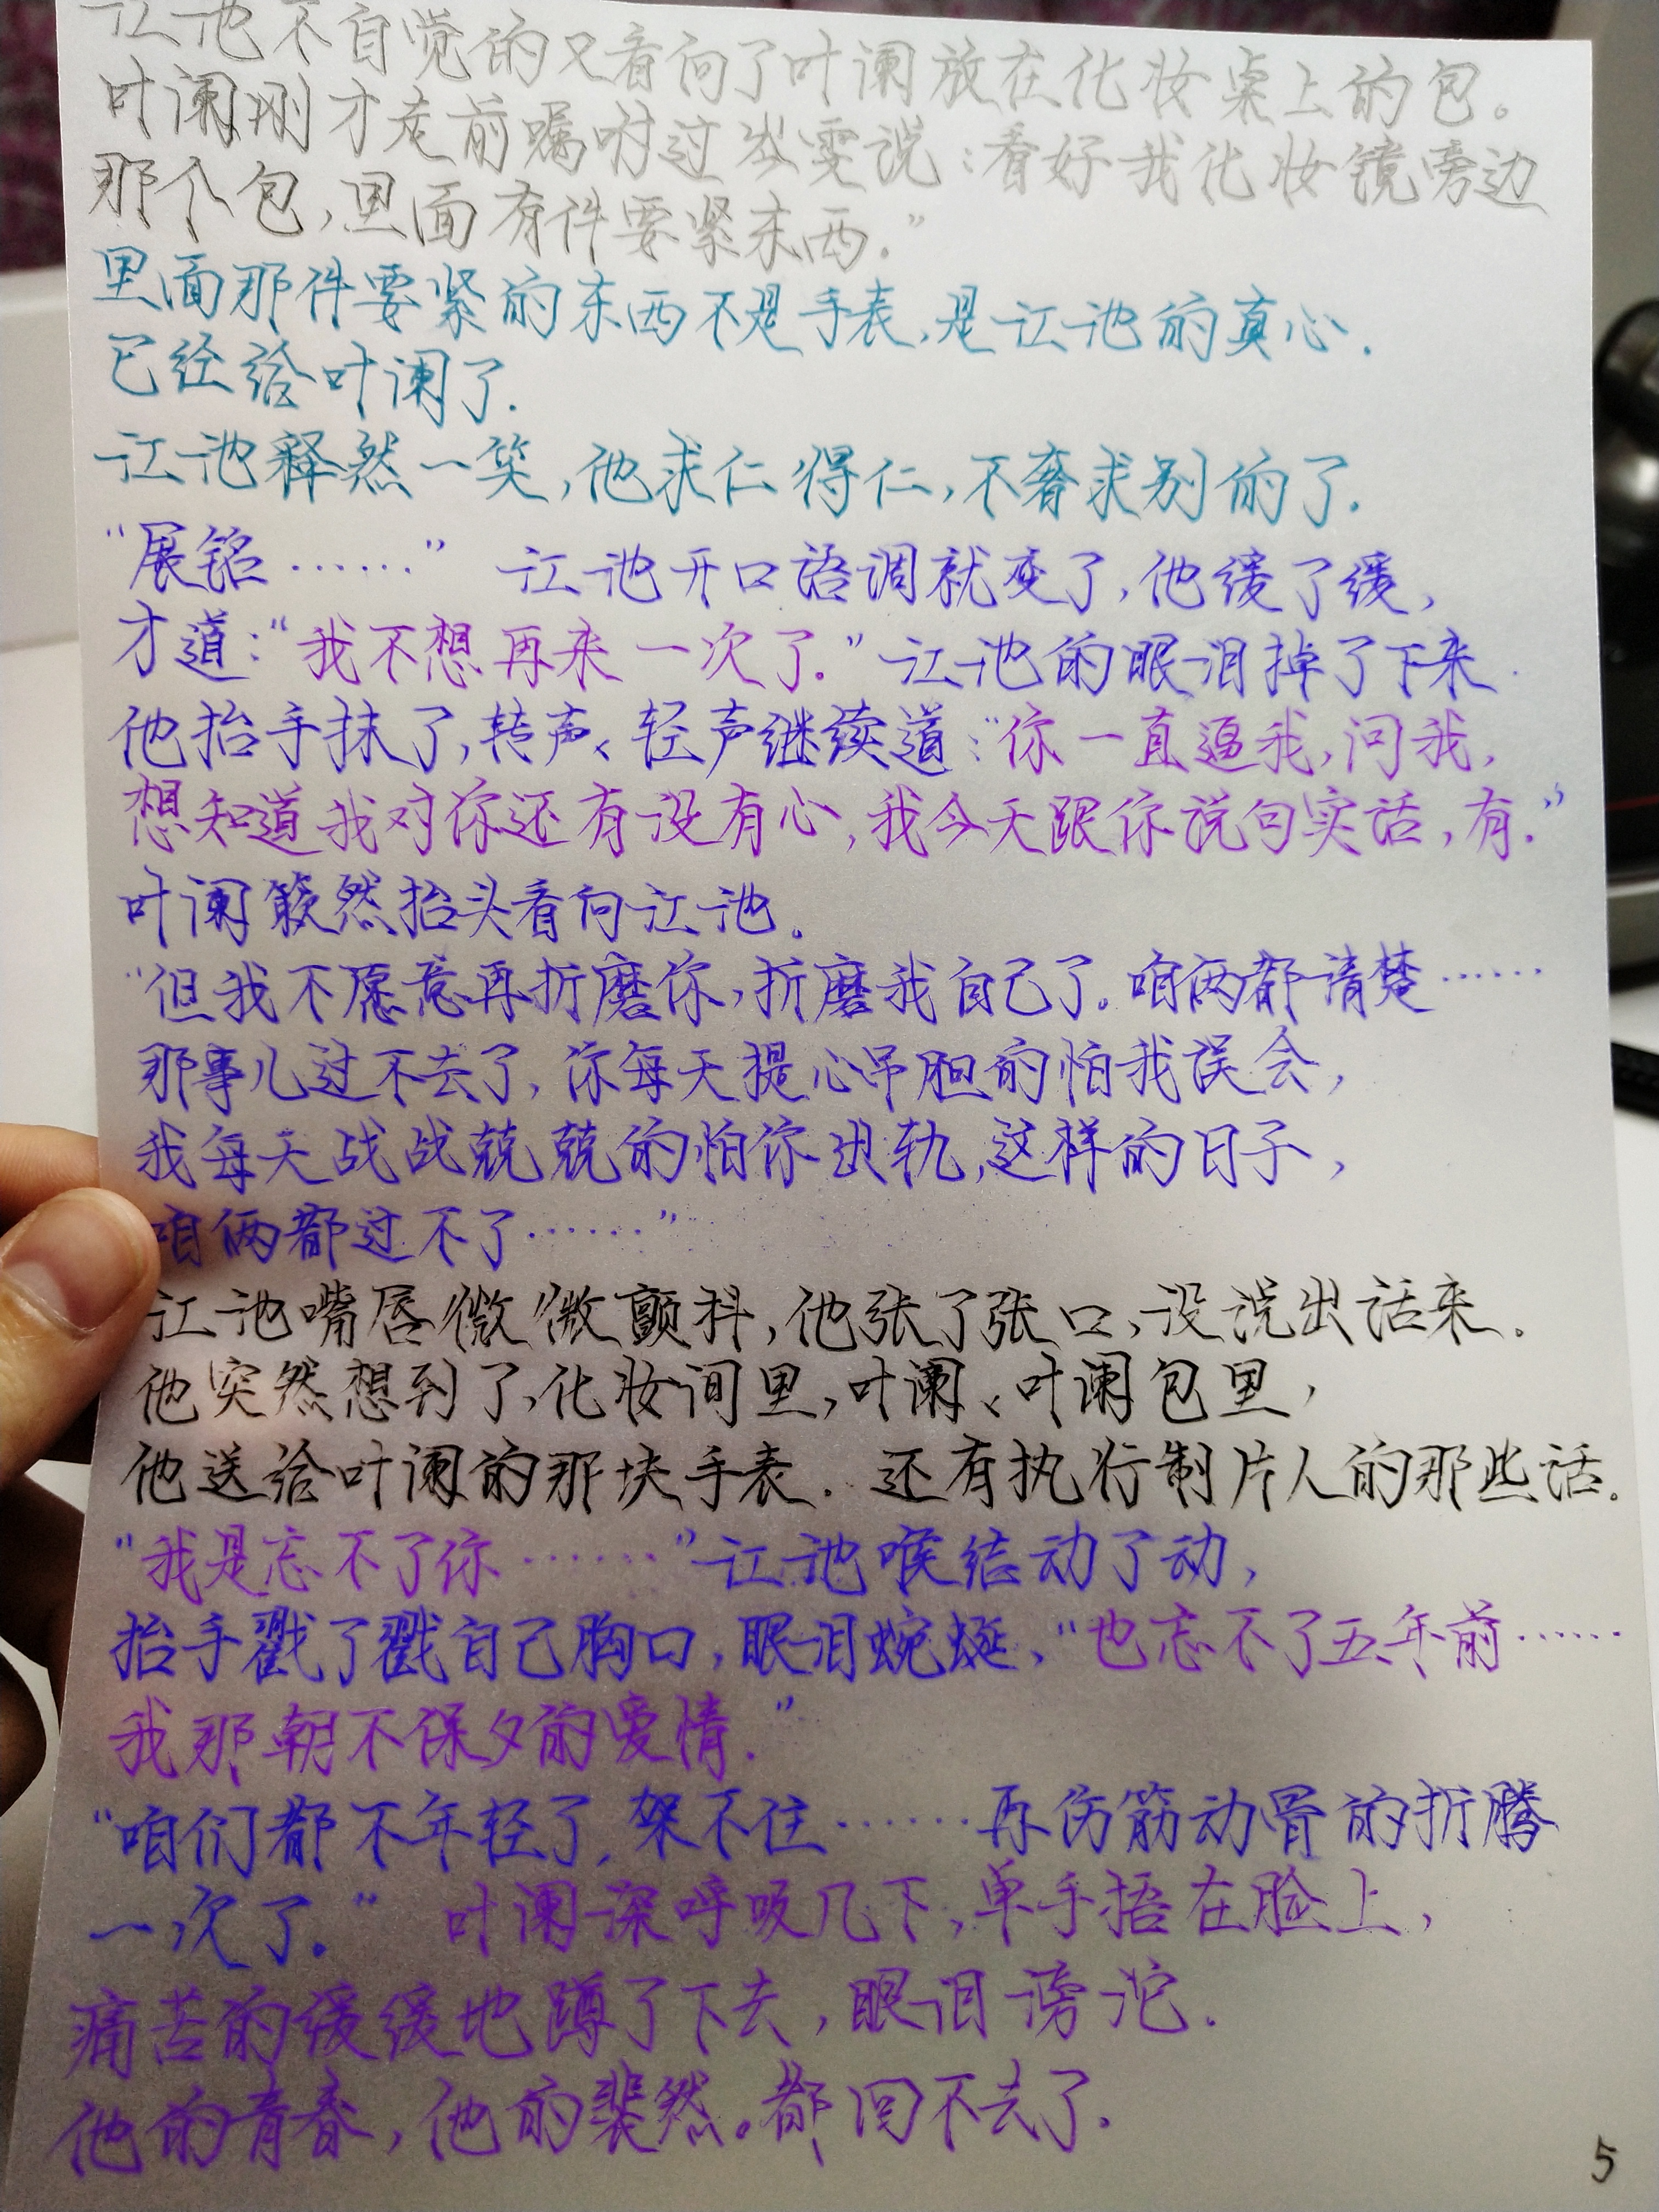 江池不自觉的又看向了叶阑放在化妆桌上的包。
叶阑刚才走前嘱咐过岑雯说:看好我化妆镜旁边
那个包,里面有件要紧东西.”
里面那件要紧的东西不是手表,是江池的真心.
已经给叶阑了.
江池释然一笑,他求仁得仁,不奢求别的了.
“展铭……” 江池开口语调就变了,他缓了缓,
才道:“我不想再来一次了.”江池的眼泪掉了下来.
他抬手抹了,转声、轻声继续道:“你一直逼我,问我,
想知道我对你还有没有心,我今天跟你说句实话,有.”
叶阑簌然抬头看向江池.
“但我不愿意再折磨你,折磨我自己了.咱俩都清楚……
那事儿过不去了,你每天提心吊胆的怕我误会,
我每天战战兢兢的怕你出轨,这样的日子,
咱俩都过不了……”
江池嘴唇微微颤抖,他张了张口,没说出话来.
他突然想到了,化妆间里,叶阑、叶阑包里,
他送给叶阑的那块手表. 还有执行制片人的那些话.
“我是忘不了你……”江池喉结动了动,
抬手戳了戳自己胸口,眼泪蜿蜒,“也忘不了五年前……
我那朝不保夕的爱情.”
“咱们都不年轻了,架不住……再伤筋动骨的折腾
一次了.” 叶阑深呼吸几下,单手捂在脸上,
痛苦的缓缓地蹲了下去,眼泪滂沱.
他的青春,他的裴然。都回不去了.
5